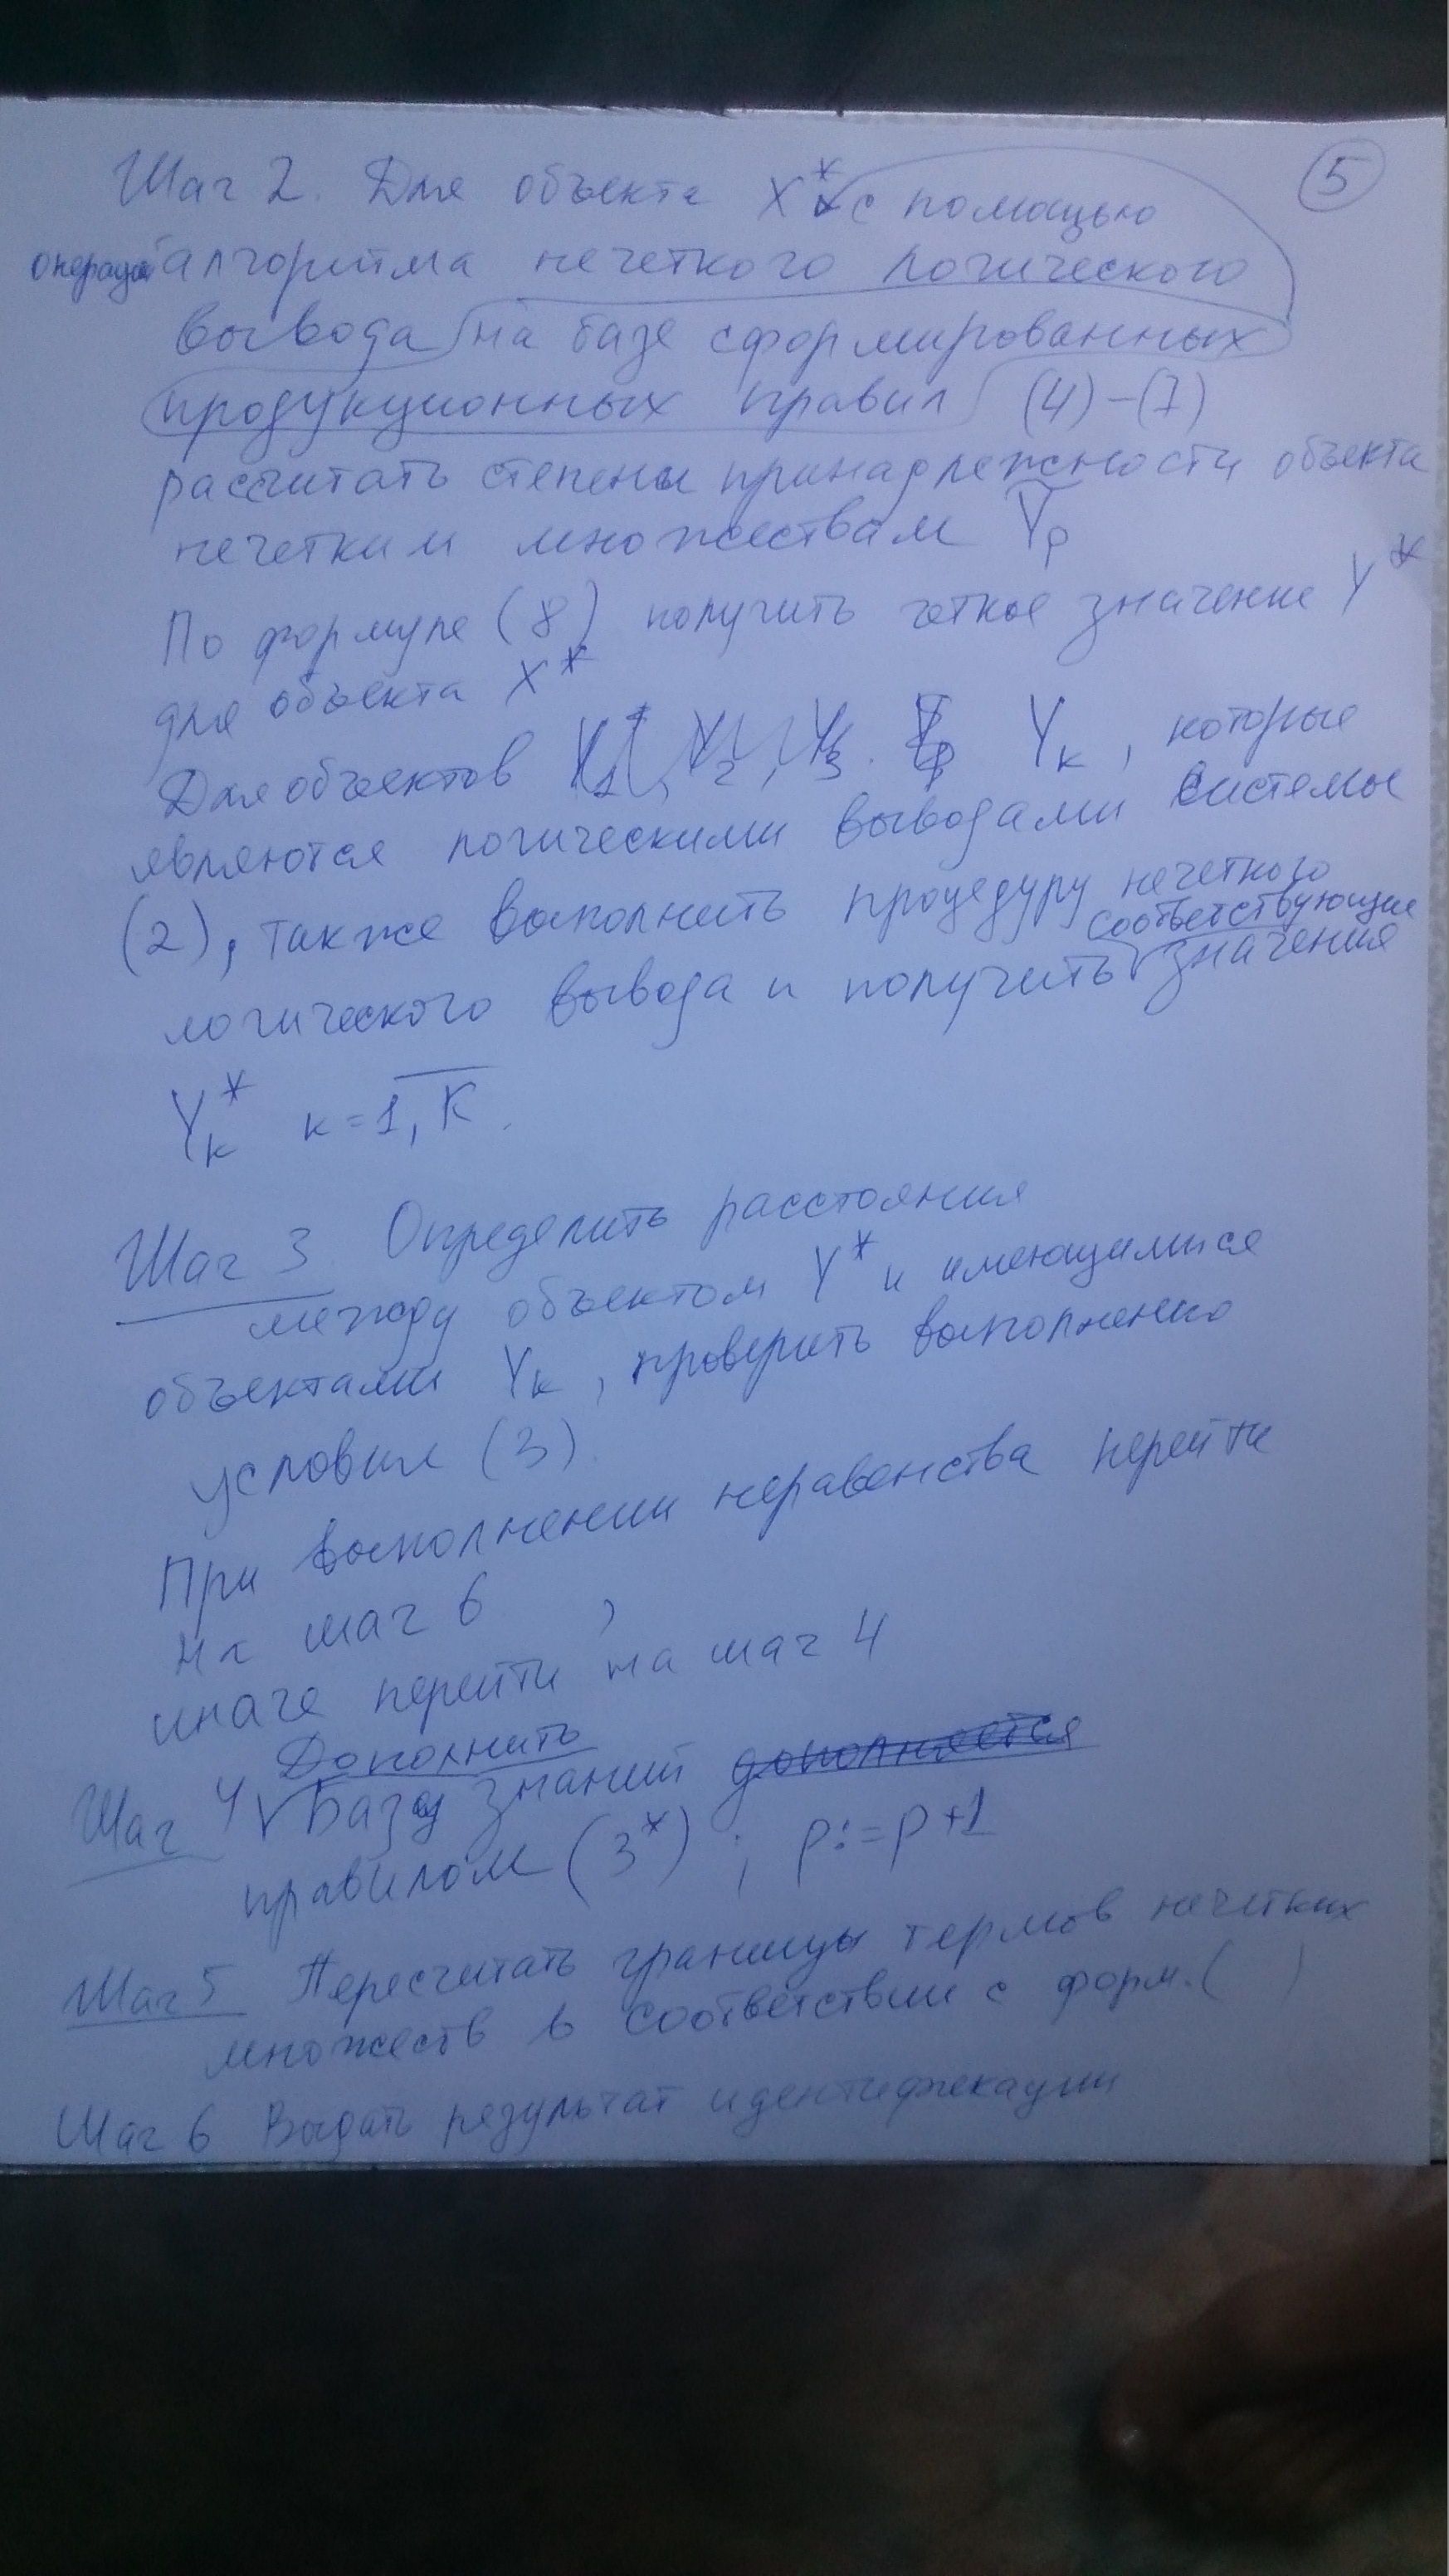 5
Шаг 2. Для объекта X* с помощью
операций алгоритма нечеткого логического
вывода на базе сформированных
продукционных правил (4)-(7)
рассчитать степени принадлежности объекта
нечетким множествам Y̅p
По формуле (8) получить четкое значение Y*
для объекта X*
Для объектов Yк, которые
являются логическими выводами системы
(2), также выполнить процедуру нечеткого
соответствующие
логического вывода и получить значения
Yк* к=1,K.
Шаг 3 Определить расстояния
между объектом Y* и имеющимися
объектами Yк, проверить выполнению
условия (3).
При выполнении неравенства перейти
на шаг 6,
иначе перейти на шаг 4
Дополнить
Шаг 4 базу знаний дополняется
правилом (3*); p:=p+1
Шаг 5 Пересчитать границы термов нечетких
множеств в соответствии с форм.( )
Шаг 6 Выдать результат идентификации